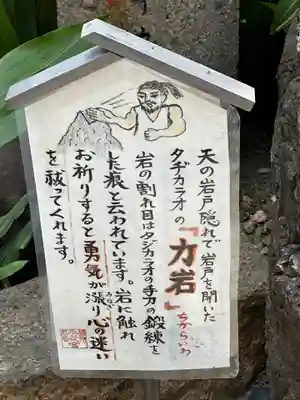 天の岩戸隠れで岩戸を開いた
タヂカラオの『力岩』
ちからいわ
岩の割れ目はタヂカラオの手刀の鍛練を
した痕と云われています。岩に触れ
お祈りすると勇気が漲り心の迷い
みなぎ
を祓ってくれます。